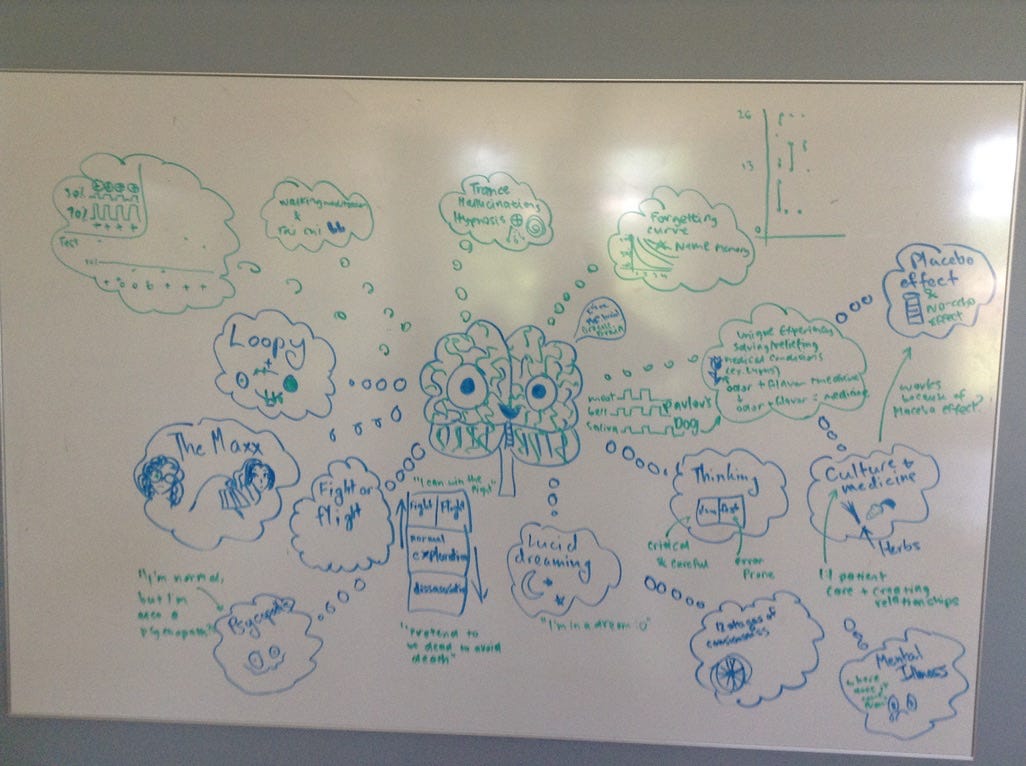 26
13
0
90%
90%
+ + + +
Test
+ 0 0 6 + + +
Walking meditation
&
Tai chi
Trance
Hallucinations
Hypnosis
Forgetting
curve
Name memory
1 2 3 4
Placebo
effect
&
No-cebo
effect
Loopy
Unique Experiences
Solving/relieving
medical conditions
(ex. Lupus)
odor + flavor + medicine
odor + flavor = medicine
meat
bell
saliva
Pavlov's
Dog
works
because of
Placebo effect?
The Maxx
Fight or
flight
"I can win the
fight"
Fight
Flight
normal
exploration
"Pretend to
be dead to avoid
death"
Lucid
dreaming
"I'm in a dream :0"
Thinking
slow
fast
critical
& careful
error
Prone
Culture +
medicine
Herbs
1:1 patient
care + creating
relationships
"I'm normal,
but I'm
also a
Psycopath?"
Psycopaths
12 stages of
consiousness
Mental
Illness